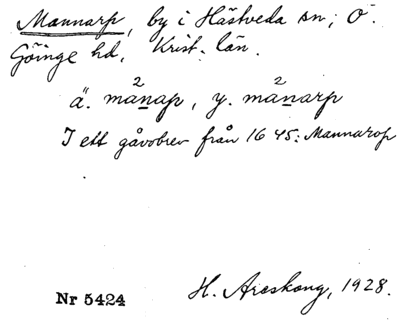 Mannarp, by i Hästveda sn; Ö.
Göinge hd, Krist. län.
ä. mànap, y. mànarp
I ett gåvobrev från 1645: Mannarop
Nr 5424
H. Areskong, 1928.